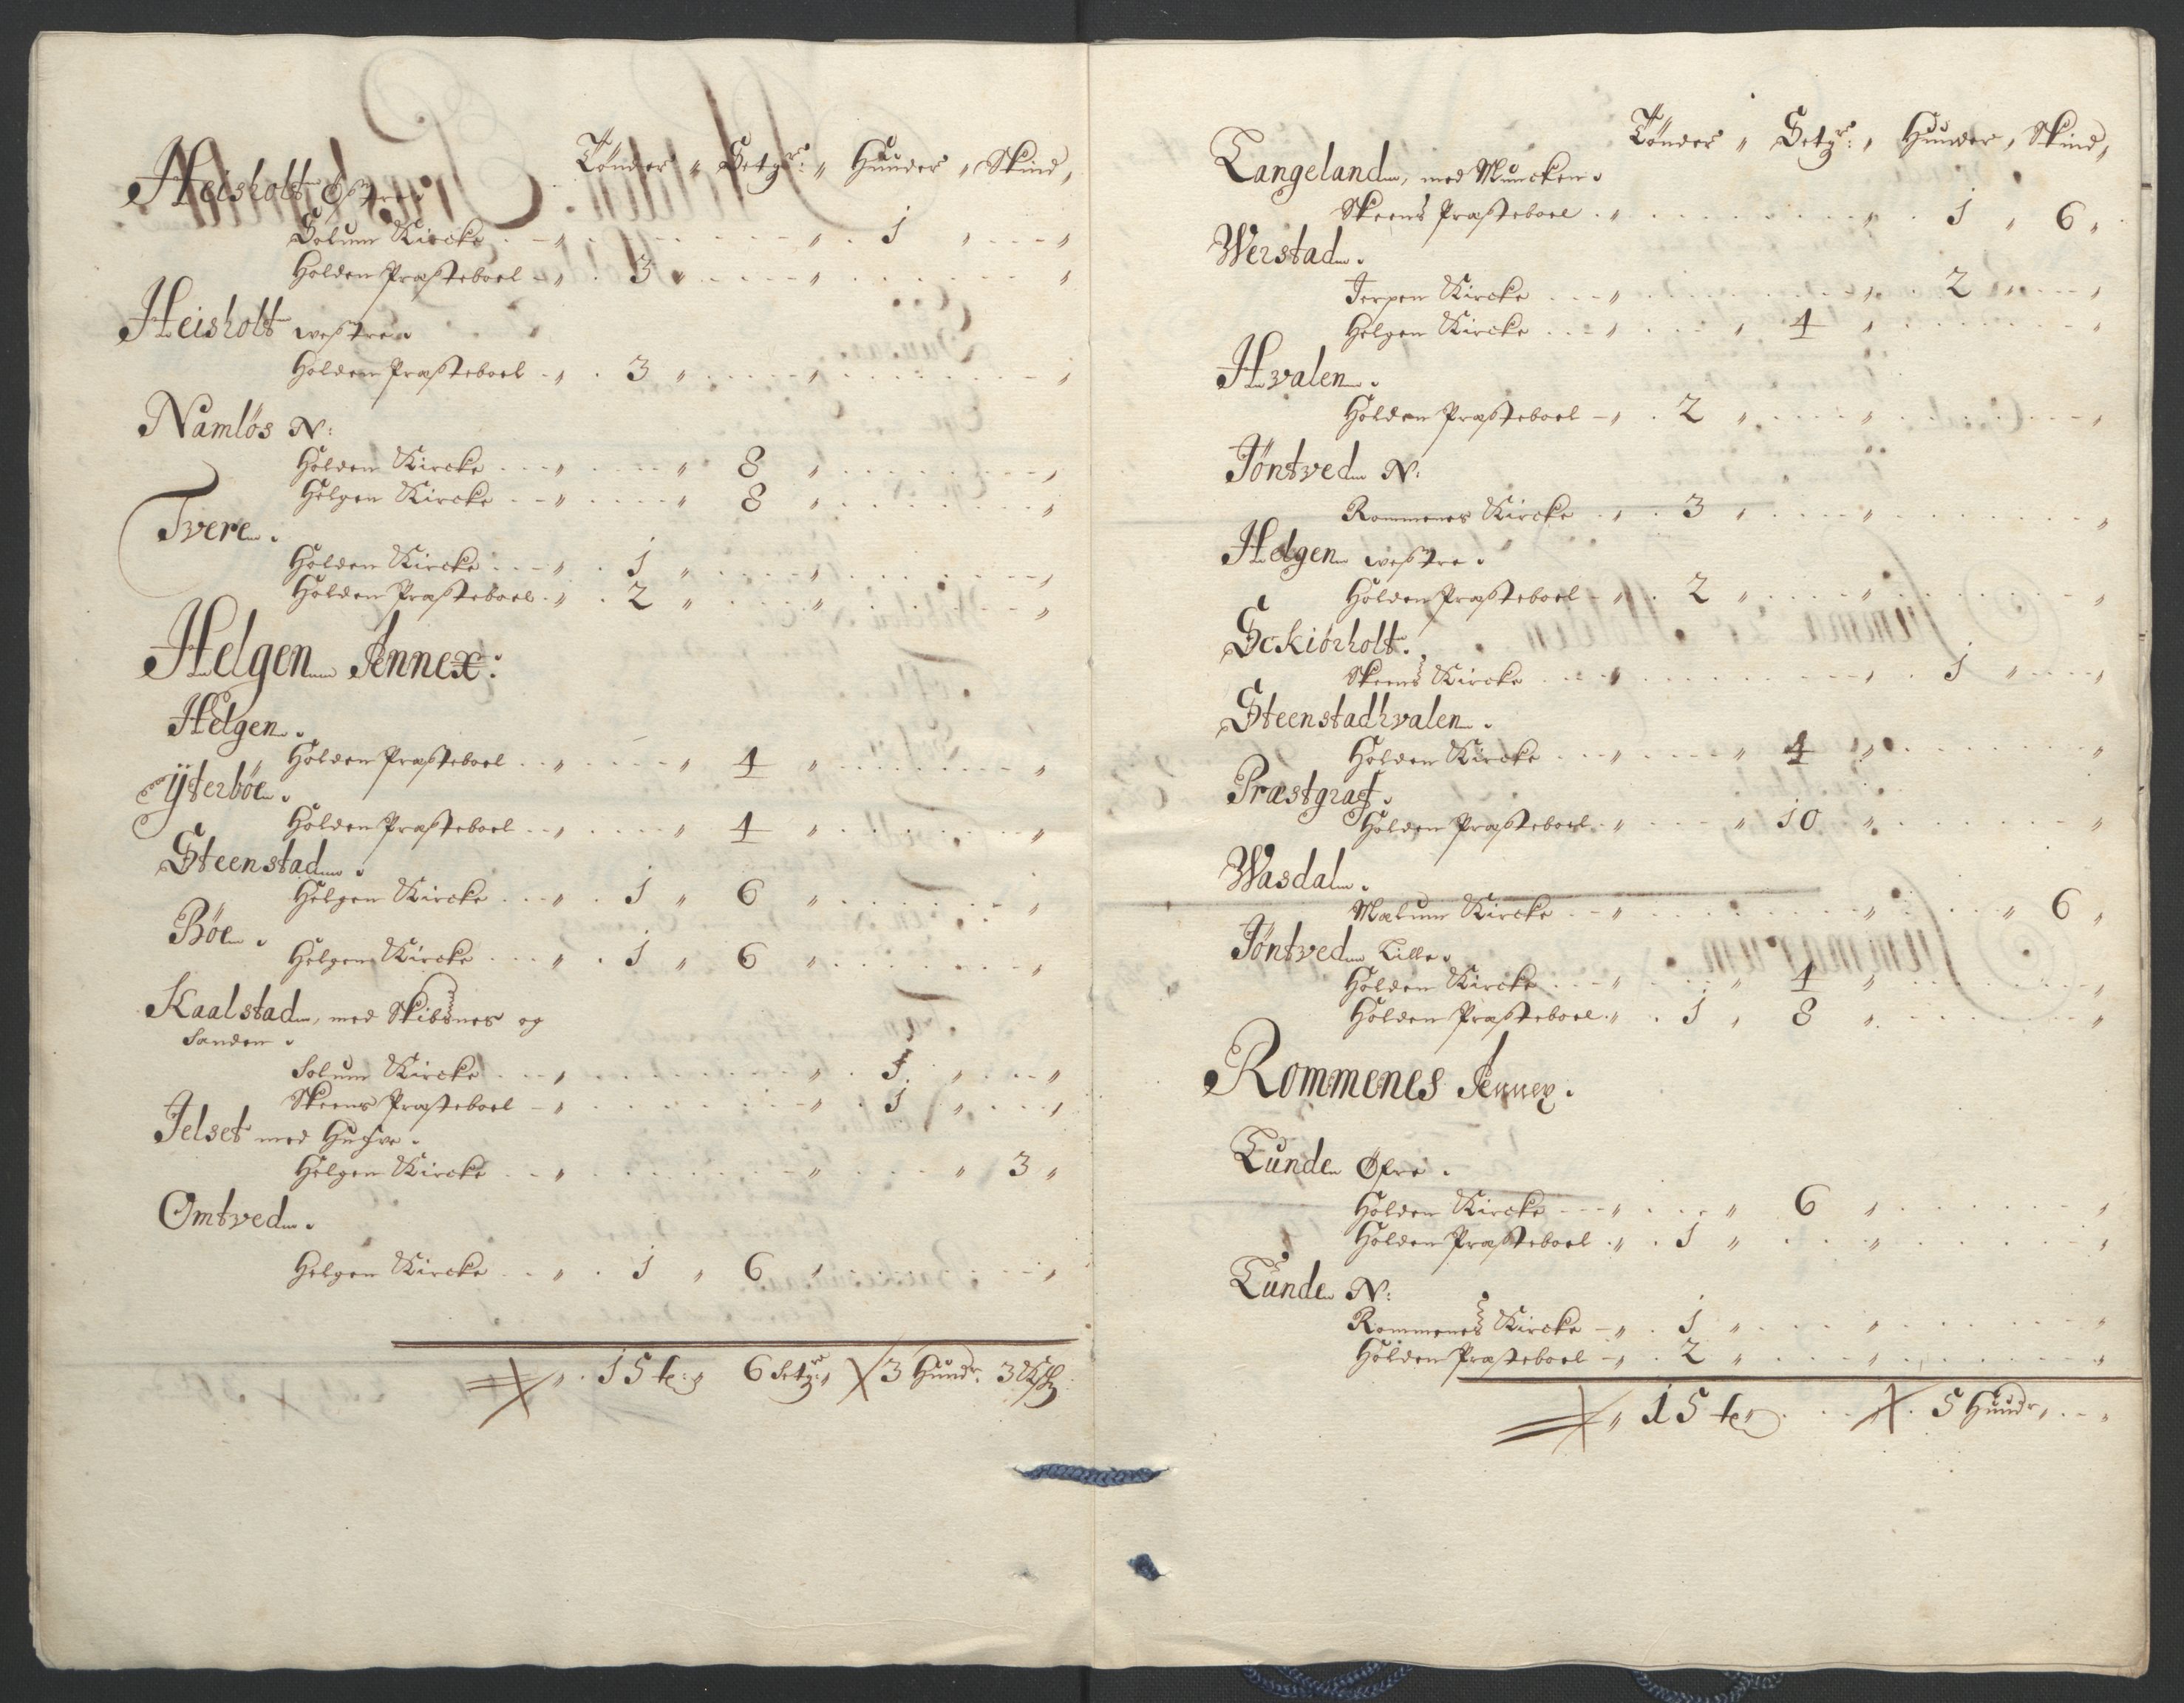 Tönder " Setgr: " Hunder " Skind,
Heisholt Östre.
Solum Kircke . - " . . . . . " . 1 " . . - "
Holden Præsteboel - " . 3 " . . . . - " . . . . . "
Heisholt westre.
Holden Præsteboel - " . 3 " . . . . " . . . . . "
Namlös N:
Holden Kircke . . - " . . . . " 8 " . . . . . "
Helgen Kircke . . - " . . . . " 8 " . . . . . "
Tvere.
Holden Kircke . . - " . 1 " . . . . " . . . . . "
Holden Præsteboel . " . 2 " . . . . " . . . . . "
Helgen Annex:
Helgen.
Holden Præsteboel . . " . . . . " 4 " . . . . . "
Ÿterböe.
Holden Præsteboel . . " . . . . " 4 " . . . . . "
Steenstad.
Helgen Kircke . . - " . 1 " 6 " . . . . . "
Böe.
Helgen Kircke . . . " . 1 " 6 " . . . . . "
Kaalstad, med Skibsnes og
Sanden.
Solum Kircke . . - " . . . . . " . 1 " . . "
Skeens Præsteboel - " . . . . . " . 1 " . . "
Jelset med
Helgen Kircke . . - " . . . . . " . . . " 3 "
Omtved.
Helgen Kircke . . - " . 1 " 6 " . . . . . "
" . 15 te: " 6 Setgr: " 3 Hundr. 3 Sk
Tönder " Setgr: " Hunder " Skind,
Langeland, med Muncken.
Skeens Præsteboel . " . . . . . " . 1 " 6 "
Werstad.
Jerpen Kircke . . - " . . . . . " . 2 " . . "
Helgen Kircke . . - " . . . . " 4 " . . . . . "
Hvalen.
Holden Præsteboel - " . 2 " . . . . " . . . . . "
Jöntved N:
Rommenes Kircke . " . 3 " . . . . " . . . . . "
Helgen westre.
Holden Præsteboel - " . 2 " . . . . " . . . . . "
Sckiörholt.
Skeens Kircke . . - " . . . . . " . 1 " . . "
Steenstadhvalen.
Holden Kircke . . - " . . . . " 4 " . . . . . "
Præstgraf.
Holden Præsteboel . " . . . . " 10 " . . . . . "
Wasdal.
Mælum Kircke . - " . . . . . " . . . " 6 "
Jöntved Lille.
Holden Kircke . . - " . . . . " 4 " . . . . . "
Holden Præsteboel . " . 1 " 8 " . . . . . "
Rommenes Annex.
Lunde Öfre.
Holden Kircke . . - " . . . " 6 " . . . . . "
Holden Præsteboel . " . 1 " . . . . " . . . . . "
Lunde N:
Rommenes Kircke - " . 1 " . . . . " . . . . . "
Holden Præsteboel - " . 2 " . . . . " . . . . . "
" 15 te . . . 5 Hundr " . - "